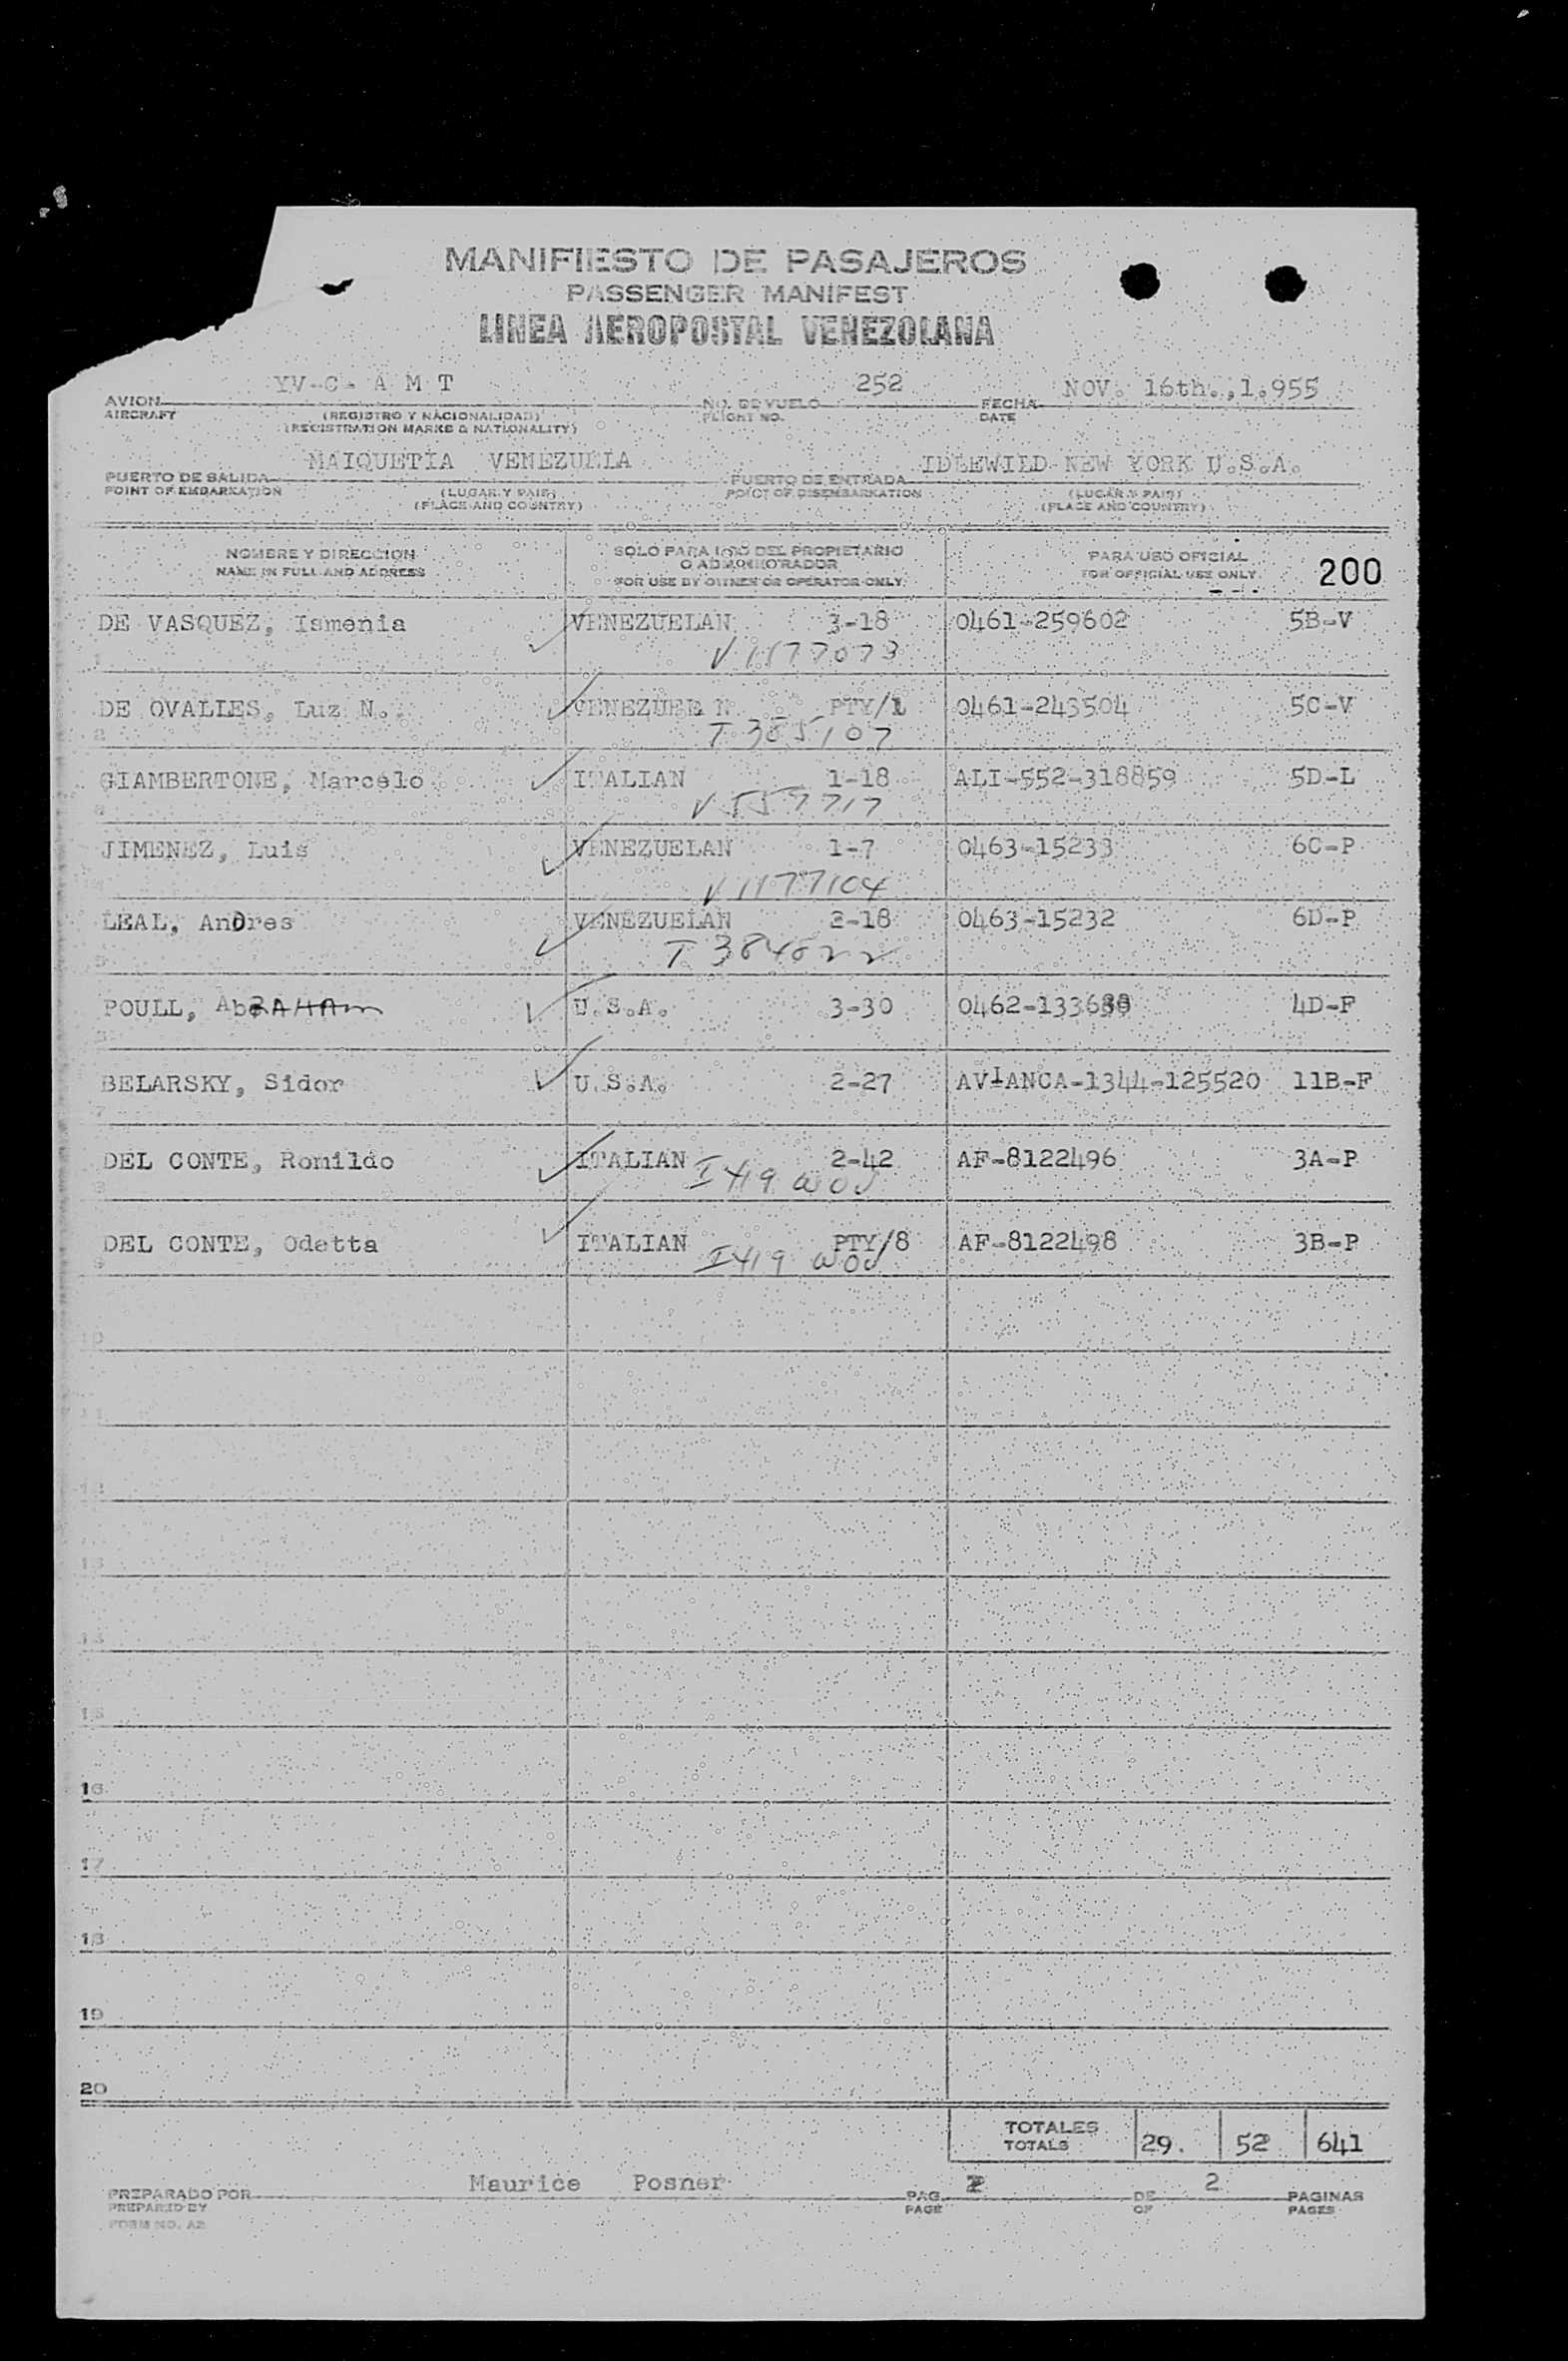 MANIFIESTO DE PASAJEROS
PASSENGER MANIFEST
LINEA AEROPOSTAL VENEZOLANA
AVION YV-C- A M T NO. DE VUELO 252 FECHA NOV. 16th.,1.955
AIRCRAFT (REGISTRO Y NACIONALIDAD) FLIGHT NO. DATE
(REGISTRATION MARKS & NATIONALITY)
PUERTO DE SALIDA MAIQUETIA VENEZUELA PUERTO DE ENTRADA IDLEWILD NEW YORK U.S.A.
POINT OF EMBARKATION (LUGAR Y PAIS) POINT OF DISEMBARKATION (LUGAR Y PAIS)
(PLACE AND COUNTRY) (PLACE AND COUNTRY)
NOMBRE Y DIRECCION SOLO PARA USO DEL PROPIETARIO PARA USO OFICIAL 200
NAME IN FULL AND ADDRESS O ADMINISTRADOR FOR OFFICIAL USE ONLY
FOR USE BY OWNER OR OPERATOR ONLY
DE VASQUEZ, Ismenia VENEZUELAN 3-18 0461-259602 5B-V
1 V 1177073
DE OVALLES, Luz N. PTY/1 0461-243504 5C-V
2 T 385107
GIAMBERTONE, Marcelo ITALIAN 1-18 ALI-552-318859 5D-L
3 V 557717
JIMENEZ, Luis VENEZUELAN 1-7 0463-15233 6C-P
4 V 1177104
LEAL, AnDres VENEZUELAN 2-18 0463-15232 6D-P
5 T 384822
POULL, AbRAHAm U.S.A. 3-30 4D-F
6
BELARSKY, Sidor U.S.A. 2-27 AVIANCA-1344-125520 11B-F
7
DEL CONTE, Romildo ITALIAN 2-42 AF-8122496 3A-P
8 I 419
DEL CONTE, Odetta ITALIAN PTY/8 AF-8122498 3B-P
9 I 419
10
11
12
13
14
15
16
17
18
19
20
TOTALES 29. 52 641
TOTALS
PREPARADO POR Maurice Posner PAG. 2 DE 2 PAGINAS
PREPARED BY PAGE OF PAGES
FORM NO. A2